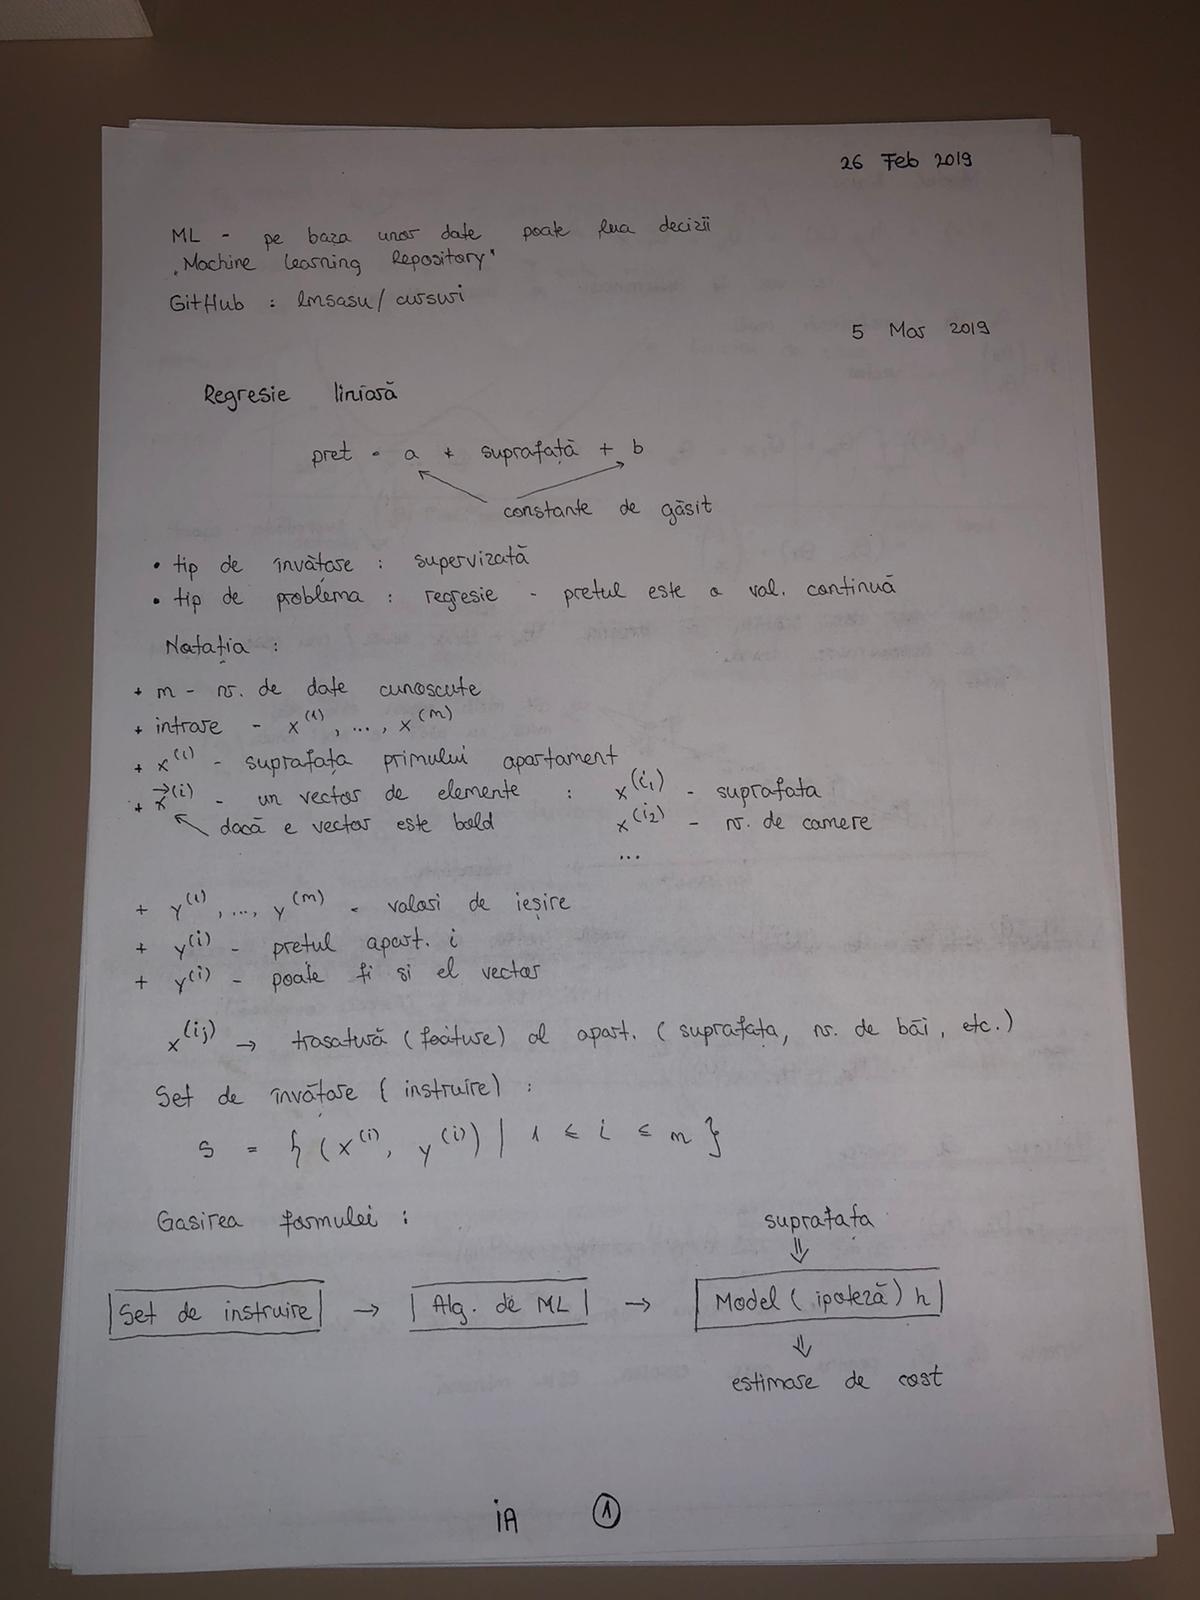 26 Feb 2019
ML - pe baza unor date poate lua decizii
"Machine Learning Repository"
GitHub : lmsasu / cursuri
5 Mar 2019
Regresie liniară
pret = a * suprafață + b
constante de găsit
• tip de învățare : supervizată
• tip de problema : regresie - pretul este o val. continuă
Notația :
+ m - nr. de date cunoscute
+ intrare - x^(1), ..., x^(m)
+ x^(1) - suprafața primului apartament
+ x⃗^(i) - un vector de elemente : x^(i1) - suprafata
dacă e vector este bold x^(i2) - nr. de camere
...
+ y^(1), ..., y^(m) - valori de ieșire
+ y^(i) - pretul apart. i
+ y^(i) - poate fi si el vector
x^(ij) → trasatură (feature) al apart. ( suprafața, nr. de băi, etc.)
Set de învățare ( instruire) :
S = { (x^(i), y^(i)) | 1 ≤ i ≤ m }
Gasirea formulei :
suprafața
⇓
Set de instruire → Alg. de ML → Model ( ipoteză) h
⇓
estimare de cost
iA 1